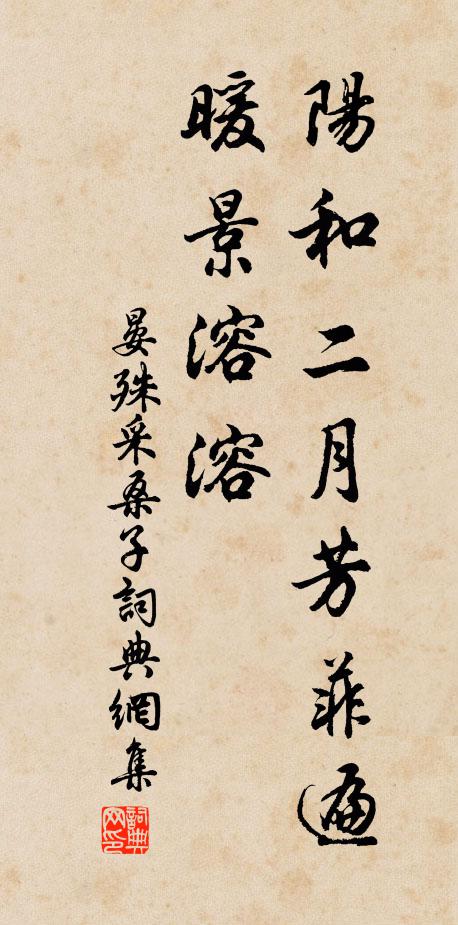 陽和二月芳菲遍
暖景溶溶
晏殊采桑子詞典網集
詞典网印